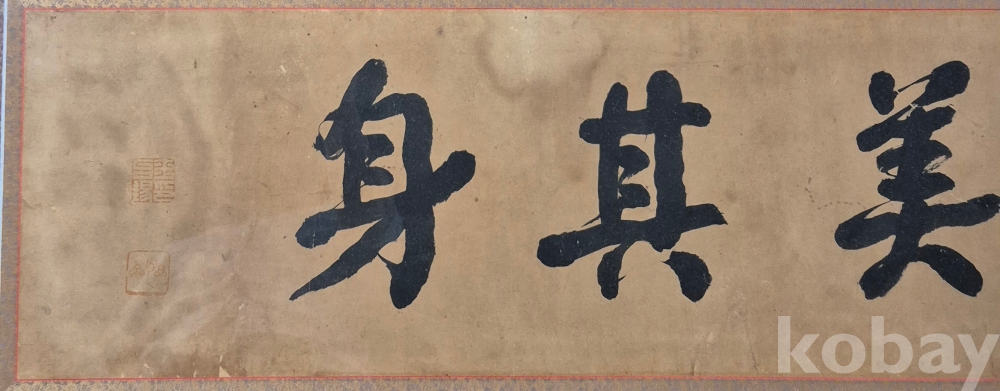 美其身
kobay